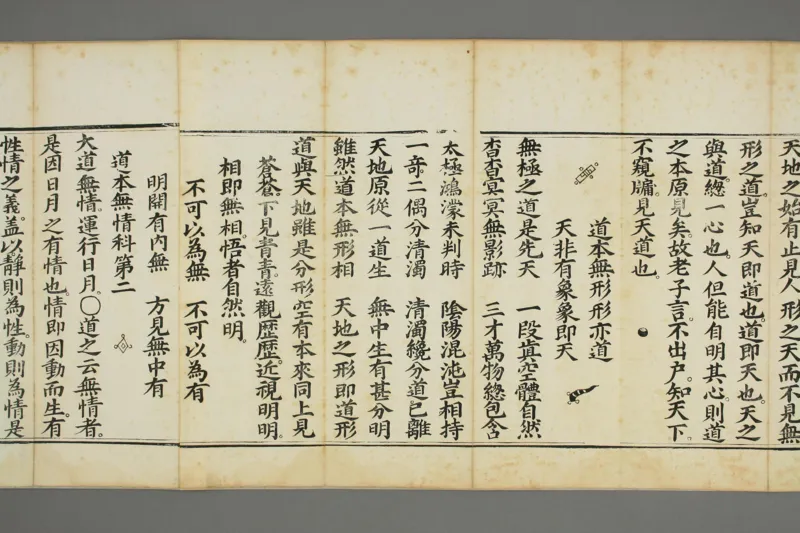 天地之始有止見人形之天而不見無
形之道豈知天即道也。道即天也。天之
與道總一心也。人但能自明其心則道
之本原見矣。故老子言。不出戶。知天下
不窺牖。見天道也。
道本無形形亦道
天非有象象即天
無極之道是先天 一段真空體自然
杳杳冥冥無影跡 三才萬物總包含
太極鴻濛未判時 陰陽混沌豈相持
一奇二偶分清濁 清濁纔分道已離
天地原從一道生 無中生有甚分明
雖然道本無形相 天地之形即道形
道與天地雖是分形。空有本來同。上見
蒼蒼。下見青青。遠觀歷歷。近視明明。
相即無相。悟者自然明。
不可以為無 不可以為有
明開有內無 方見無中有
道本無情科第二
大道無情。運行日月。〇道之云無情者。
是因日月之有情也。情即因動而生。有
性情之義。蓋以靜則為性。動則為情是